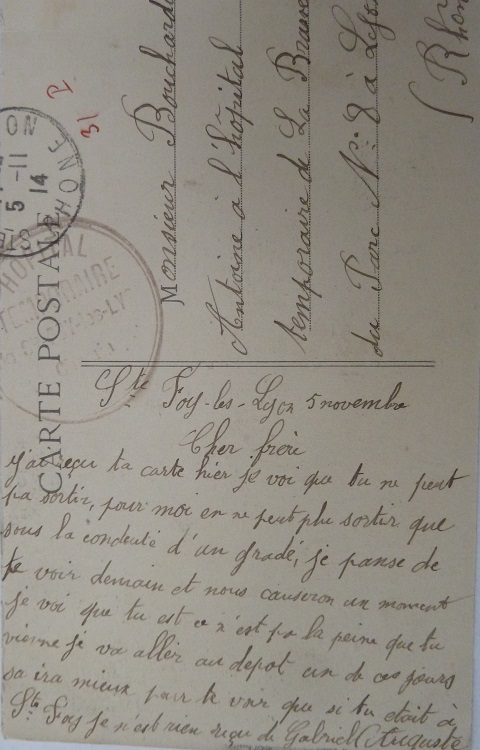 CARTE POSTALE
Monsieur Bouchard
Antoine à l'hôpital
temporaire de La Brasse
du Parc N° 8 à Lyon
(Rhon
31
HOPITAL
Ste Foy-les-Lyon 5 novembre
Cher frère
j'ai reçu ta carte hier je voi que tu ne peut
pa sortir, pour moi en ne peut plu sortir que
sous la conduite d'un gradé, je panse de
te voir demain et nous causeron un moment
je voi que tu est ce n'est pa la peine que tu
vienne je va aller au depot un de ces jours
sa ira mieux pour te voir que si tu etait à
Ste Foy je n'est rien reçu de Gabriel Auguste